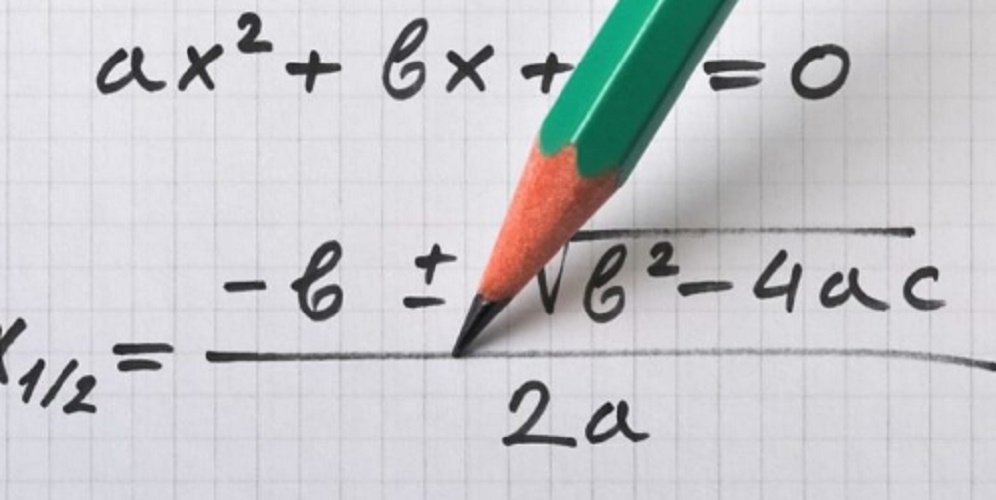 ax² + bx + = 0
x₁/₂ = -b ± √b² - 4ac
2a